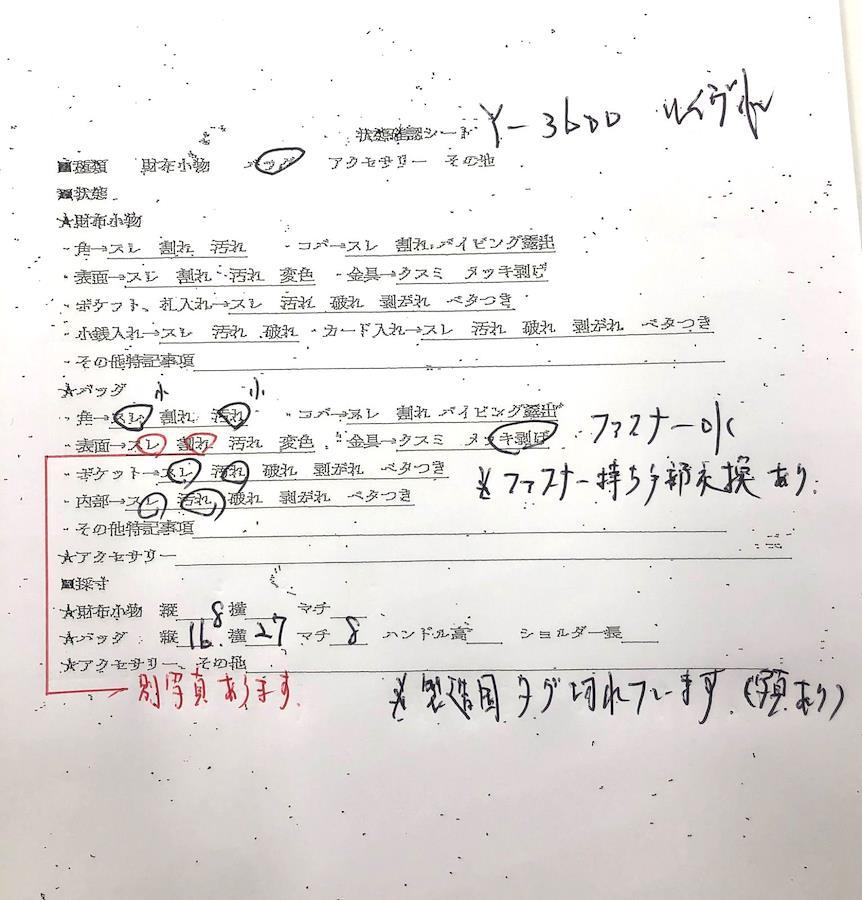 Y-3600
状態確認シート
■種類 財布小物 バッグ アクセサリー その他
■状態
★財布小物
・角→スレ 割れ 汚れ ・コバ→スレ 割れ パイピング露出
・表面→スレ 割れ 汚れ 変色 ・金具→クスミ メッキ剥げ
・ポケット、札入れ→スレ 汚れ 破れ 剥がれ ベタつき
・小銭入れ→スレ 汚れ 破れ ・カード入れ→スレ 汚れ 破れ 剥がれ ベタつき
・その他特記事項
★バッグ 小 小
・角→スレ 割れ 汚れ ・コバ→スレ 割れ パイピング露出
・表面→スレ 割れ 汚れ 変色 ・金具→クスミ メッキ剥げ ファスナーok
・ポケット→スレ 汚れ 破れ 剥がれ ベタつき
※ファスナー持ち手部 あり.
・内部→スレ 汚れ 破れ 剥がれ ベタつき
・その他特記事項
★アクセサリー
■採寸
★財布小物 縦 8 横 マチ
★バッグ 縦 16. 横 27 マチ 8 ハンドル高 ショルダー長
★アクセサリー、その他
別写真あります.
※製造国タグ切れています.(写真あり)